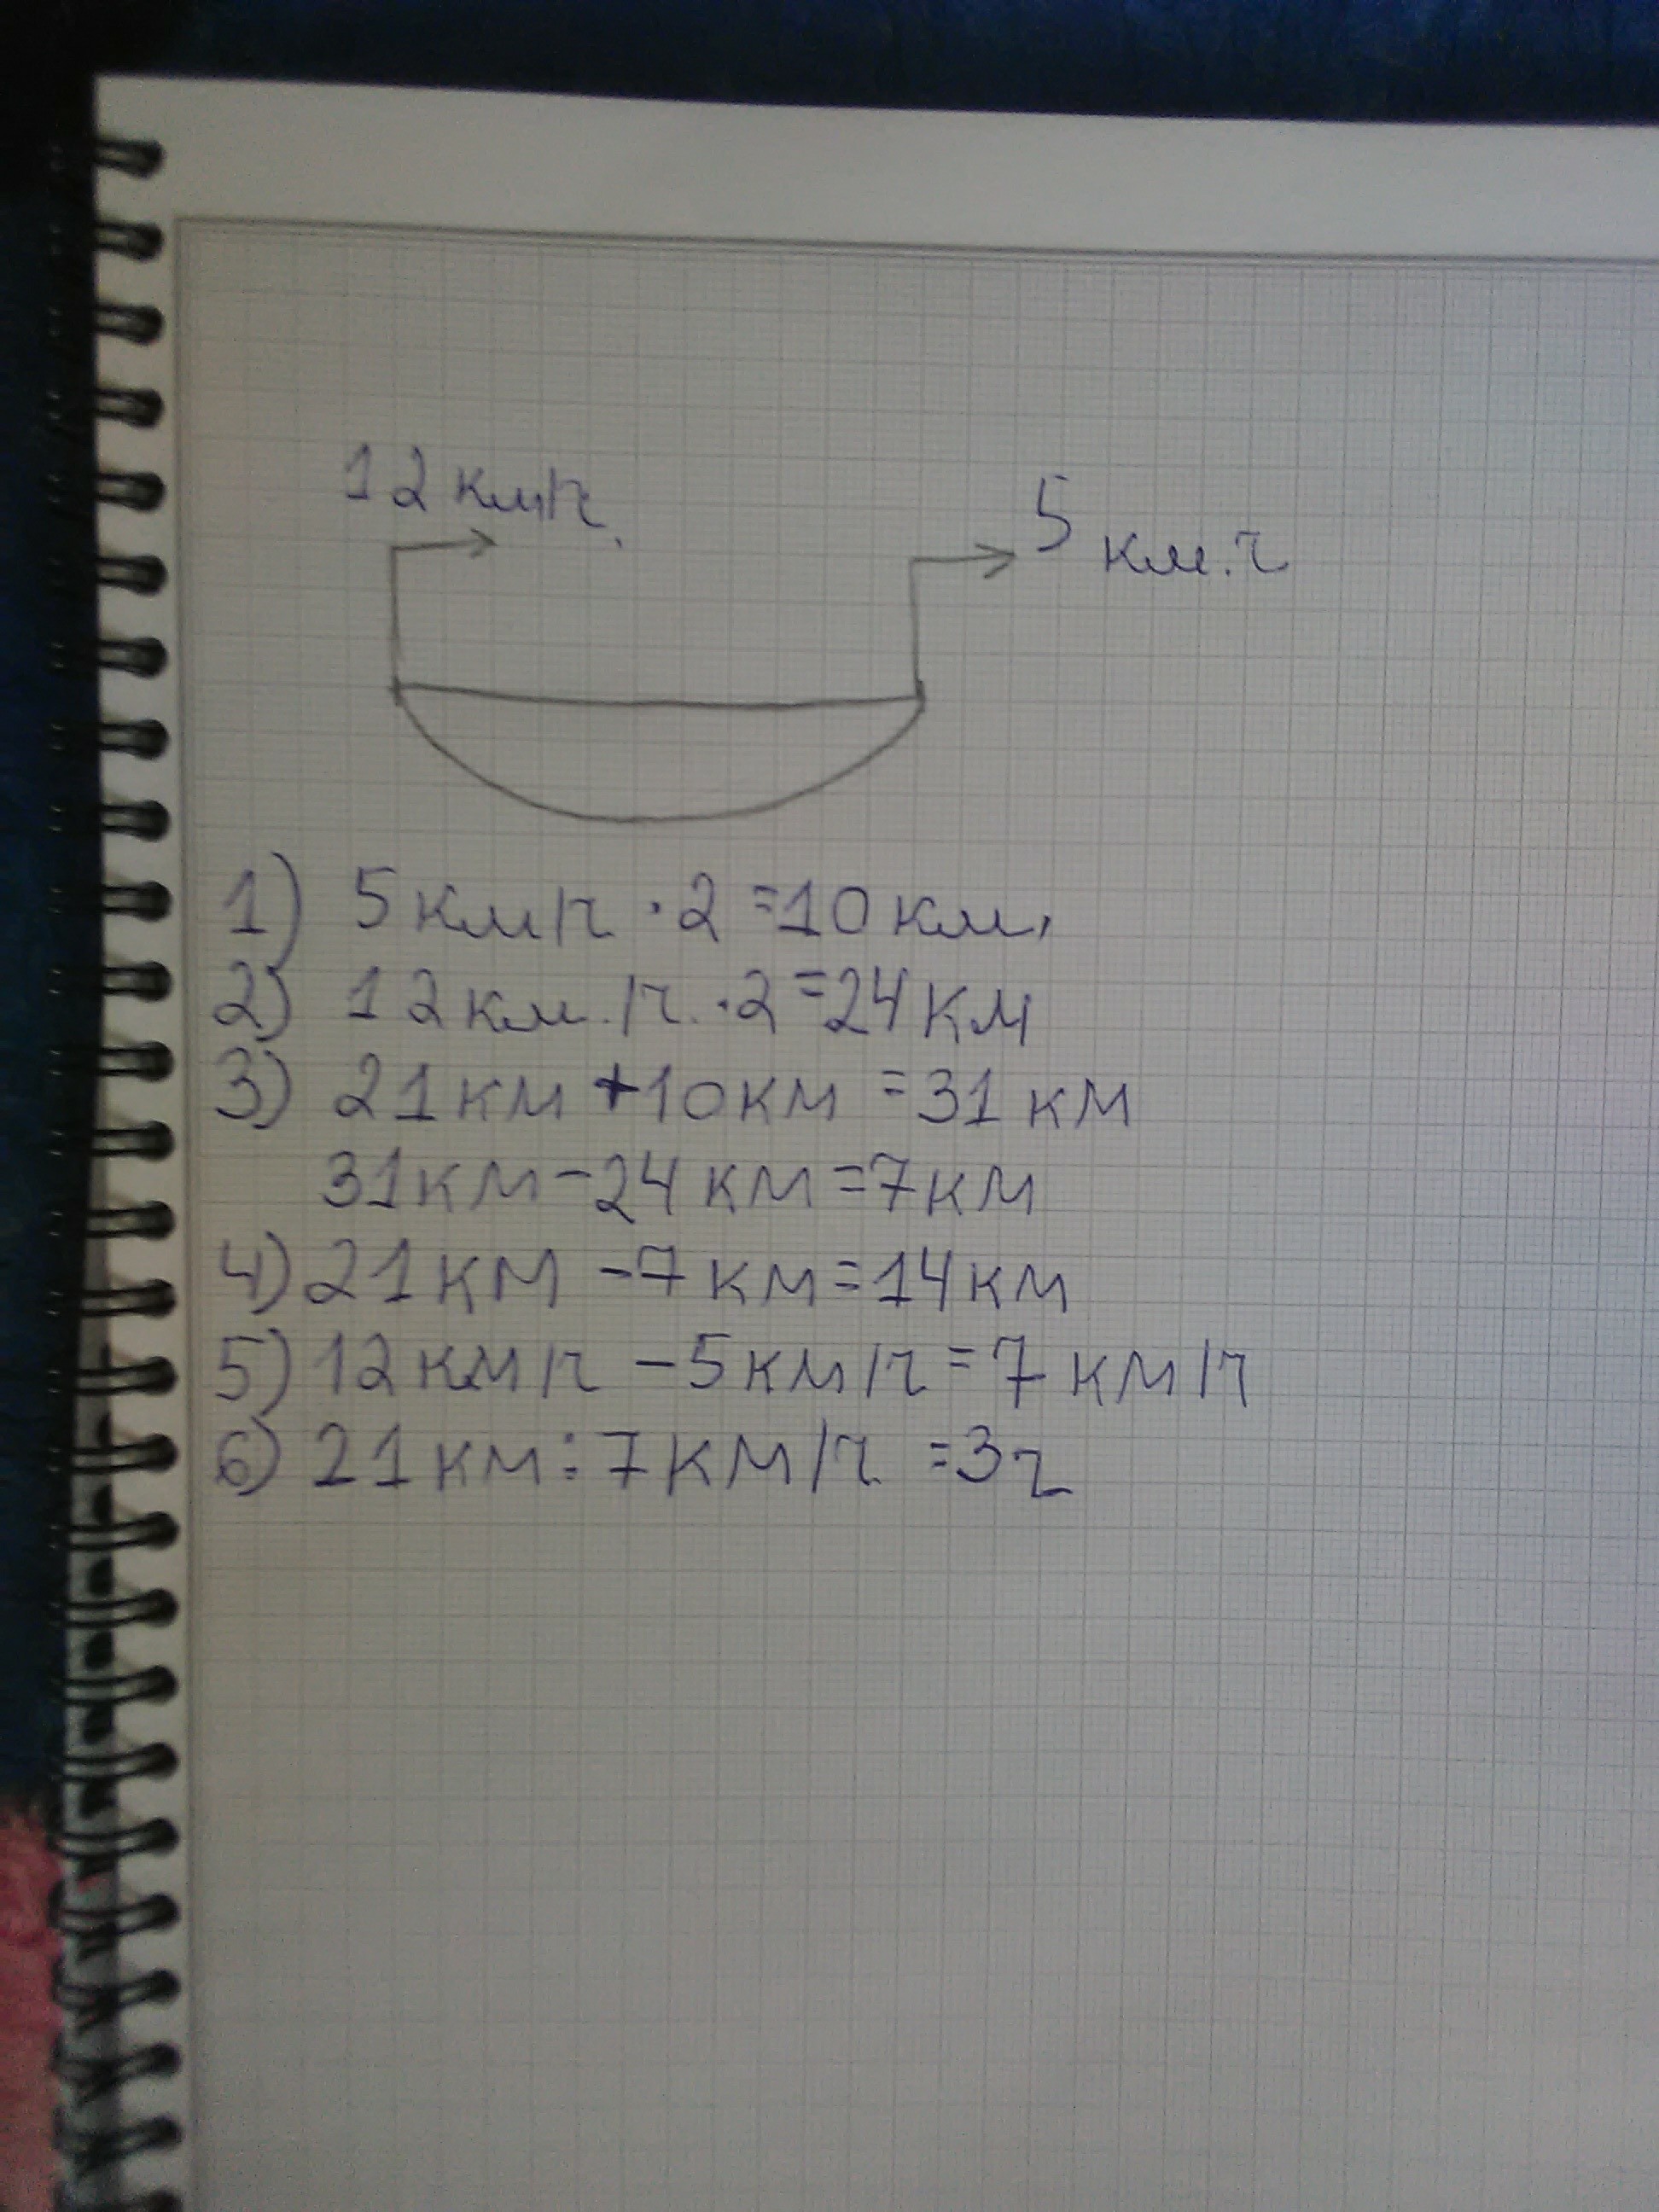 12 км/ч.
5 км.ч
1) 5 км/ч · 2 = 10 км.
2) 12 км./ч. · 2 = 24 км
3) 21 км + 10 км = 31 км
31 км - 24 км = 7 км
4) 21 км - 7 км = 14 км
5) 12 км/ч - 5 км/ч = 7 км/ч
6) 21 км : 7 км/ч = 3 ч